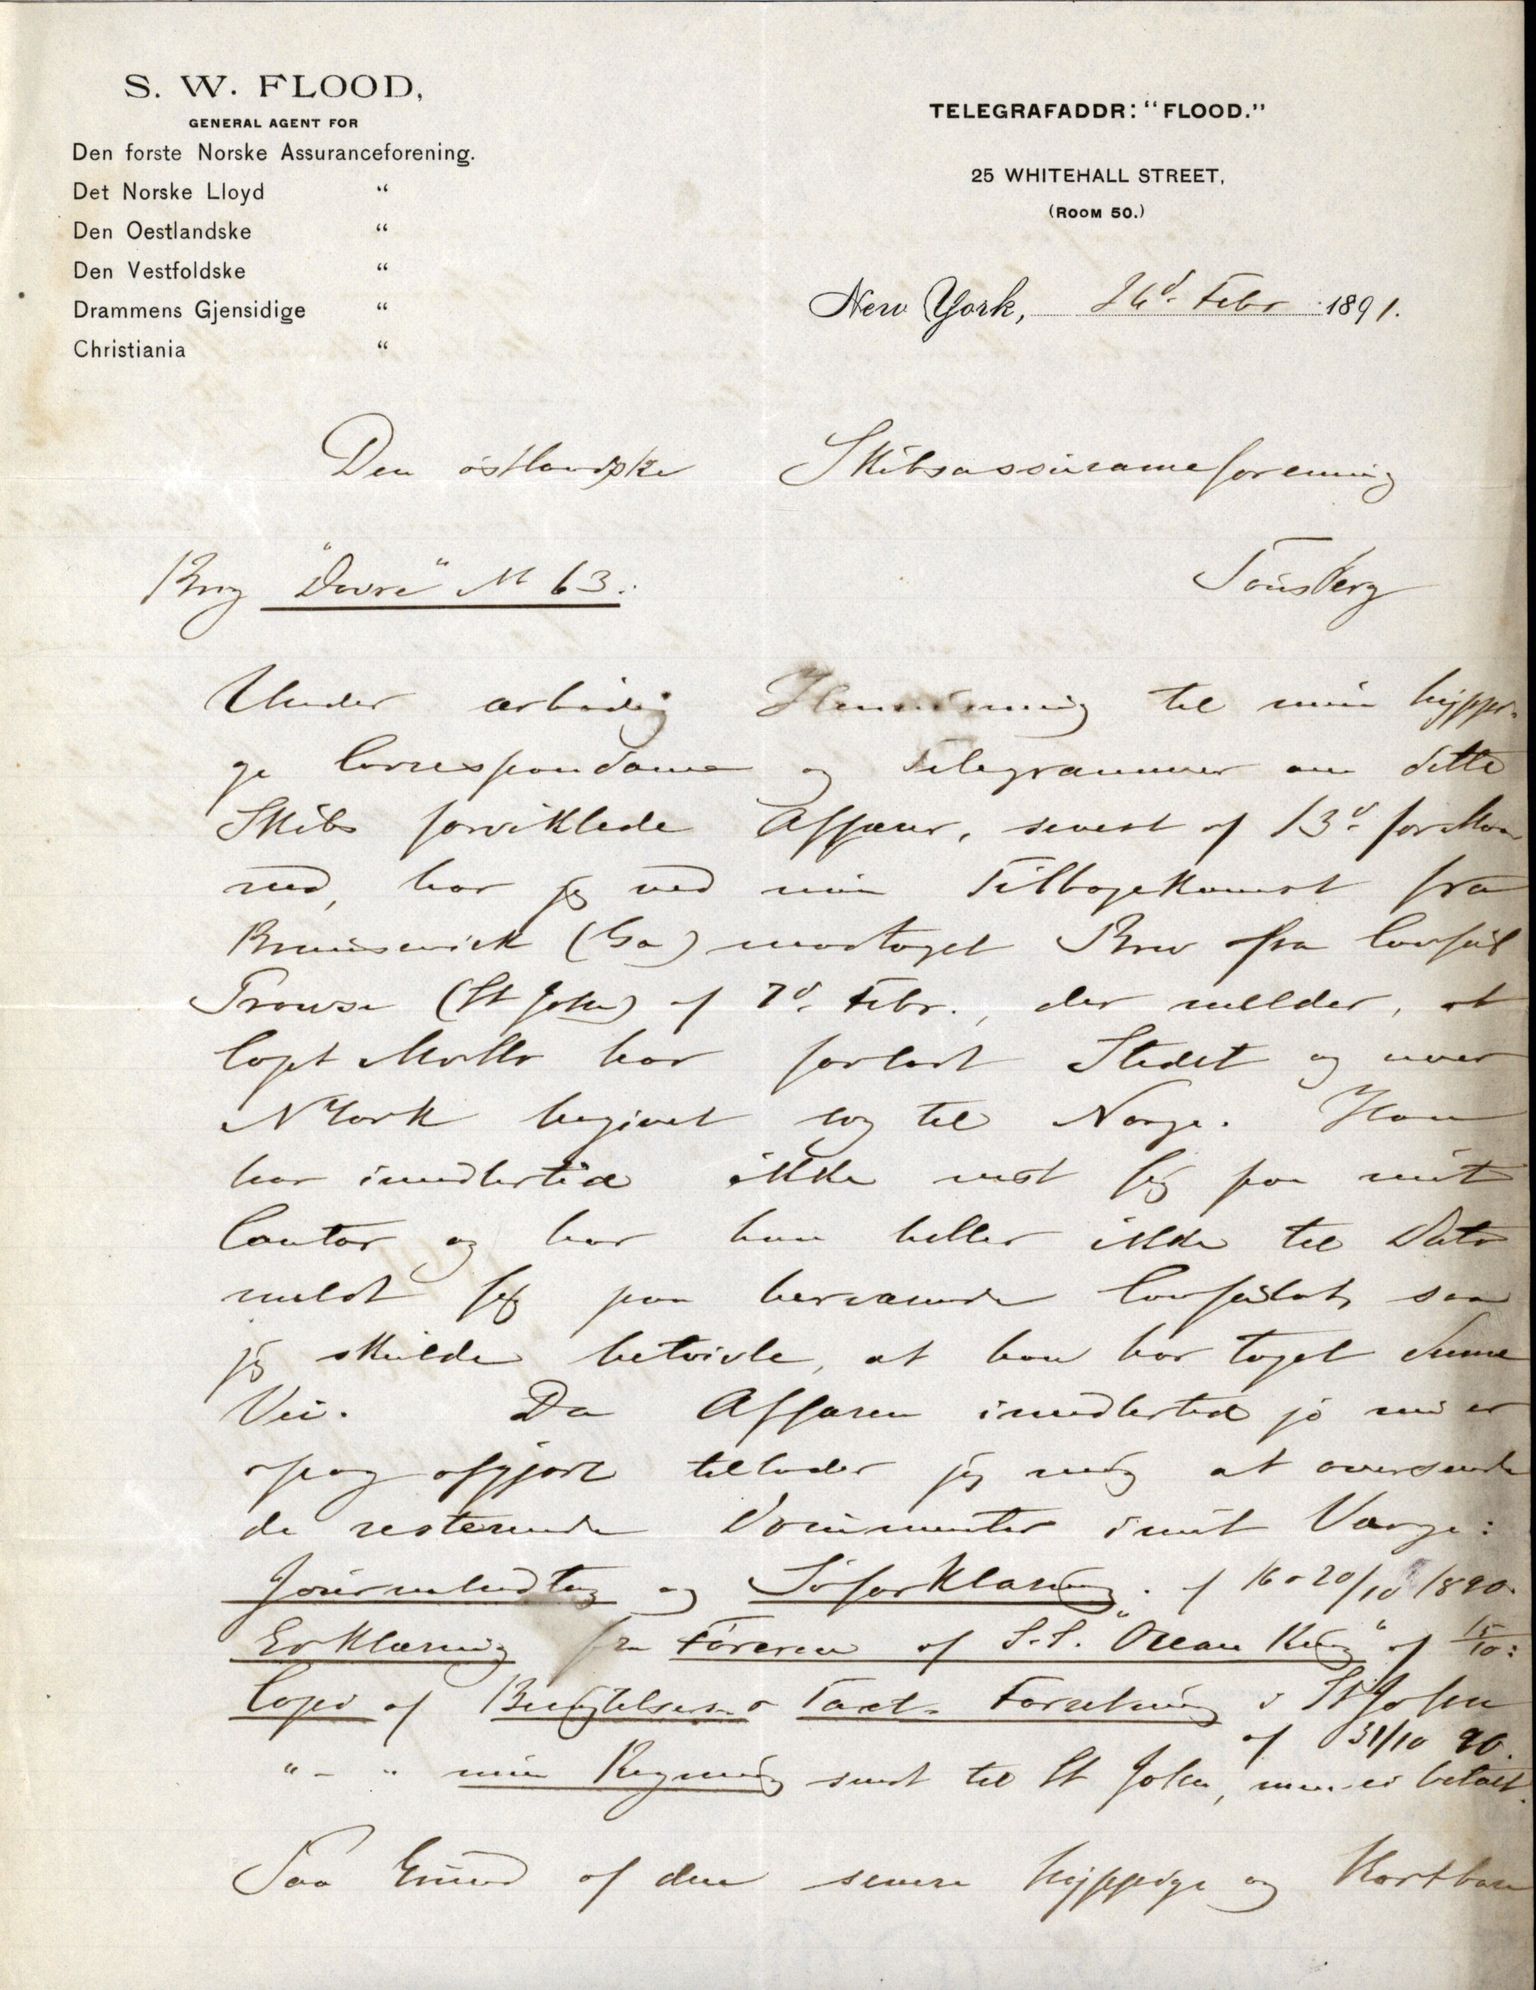 S. W. FLOOD,
GENERAL AGENT FOR
Den forste Norske Assuranceforening.
Det Norske Lloyd "
Den Oestlandske "
Den Vestfoldske "
Drammens Gjensidige "
Christiania "
TELEGRAFADDR: "FLOOD."
25 WHITEHALL STREET,
(ROOM 50.)
New York, 26d. Febr 1891.
Den østlandske Skibsassuranceforening
Tønsberg
Brig "Dovre" N 63.
Under ærbødig Henvisning til min hyppi-
ge Correspondance og Telegrammer om dette
Skibs forviklede Affære, senest af 13d. for Maa
ned, har jeg ved min Tilbagekomst fra
Brunswick (Ga) modtaget Brev fra Consul
Prowse (St John) af 7d. Febr., der melder, at
Capt Møller har forladt Stedet og over
NYork begivet sig til Norge. Han
har imidlertid ikke vist sig paa mit
Contor og har han heller ikke til Dato
meldt sig paa herværende Consulat, saa
jeg skulde betvivle, at han har taget denne
Vei. Da Affæren imidlertid jo nu er
opog afgjort tillader jeg mig at oversende
de resterende Documenter i mit Værge:
Journaludtog og Søforklaring. af 16 o 20/10 1890.
Erklæring fra Føreren af S.S. "Ocean King" af 15/10:
Copi af Besigtelses- o Taxt. Forretning i St John
af 31/10 90.
" - " min Regning sendt til St John, men ei betalt.
Paa Grund af den senere hyppige og kostbare